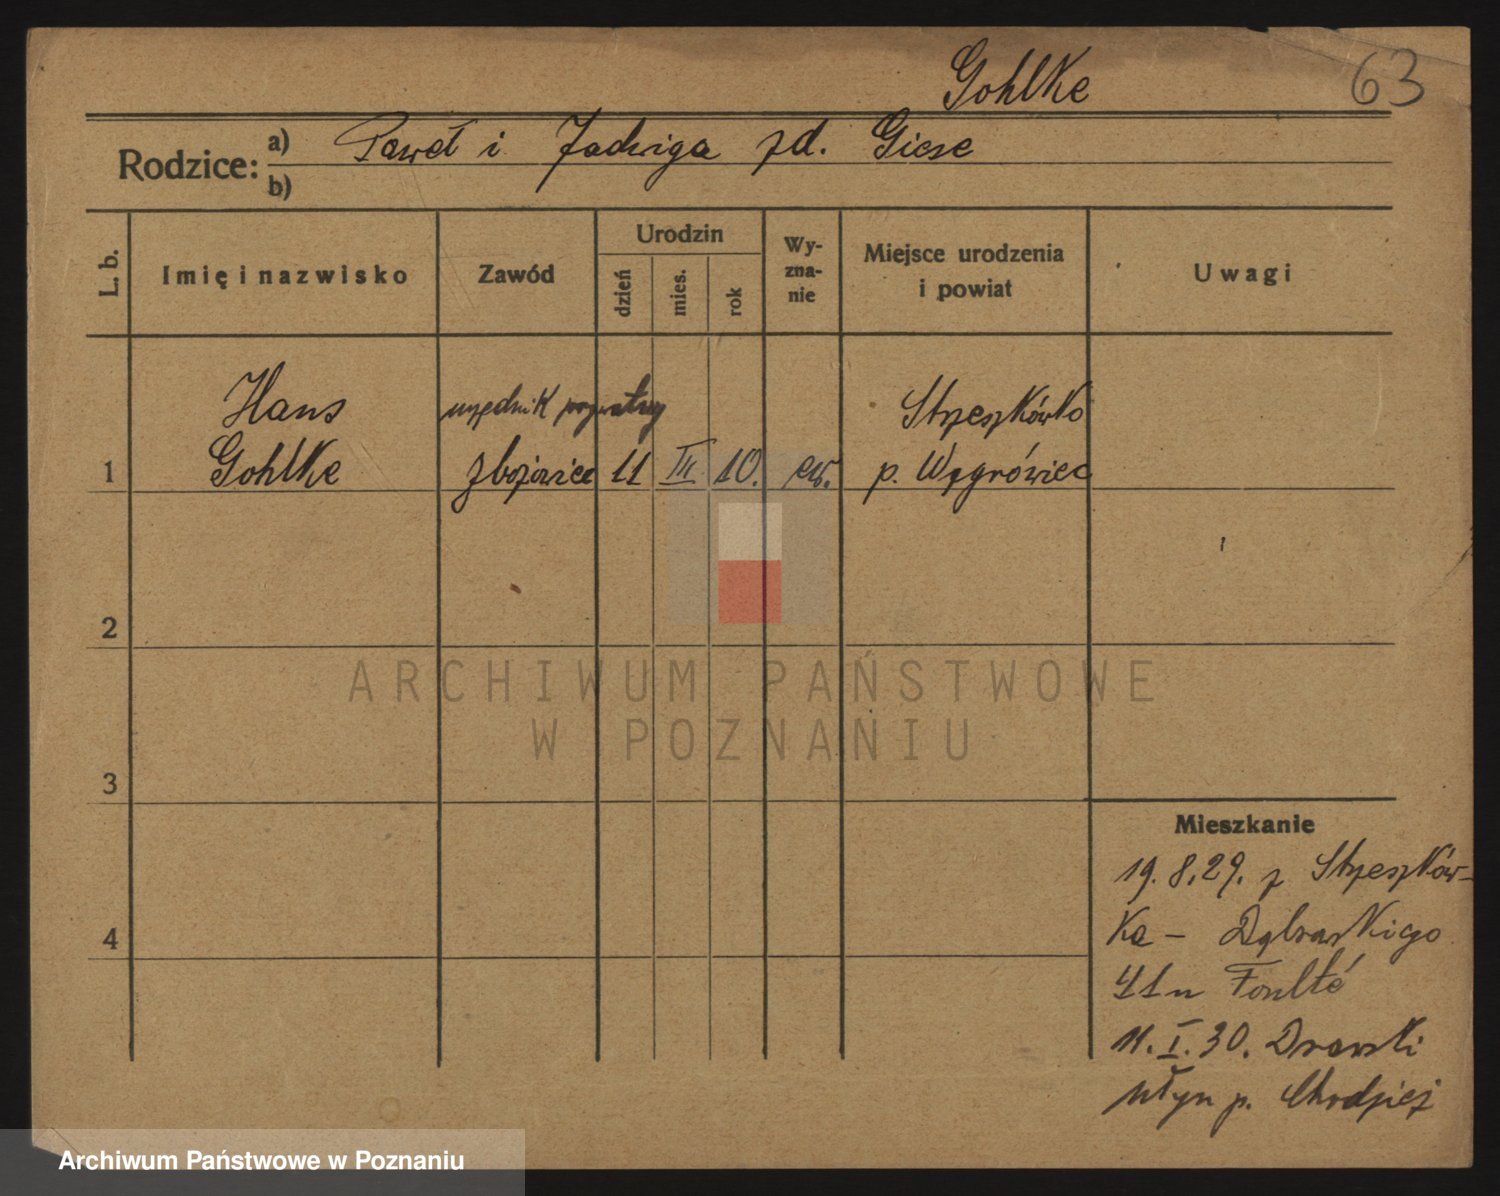 Gohlke
63
Rodzice:
a) Paweł i Jadwiga zd. Giese
b)
L. b.
Imię i nazwisko
Zawód
Urodzin
dzień
mies.
rok
Wy-
zna-
nie
Miejsce urodzenia
i powiat
Uwagi
Hans
Gohlke
urzędnik prywatny
11
III
10.
ew.
Strzeszkówko
p. Wągrówiec
1
2
3
4
ARCHIWUM PAŃSTWOWE
W POZNANIU
Mieszkanie
19.8.29. z Strzeszków-
ka – Dąbrowskiego
41 u
11.I.30. Drawski
Młyn p. Chodzież
Archiwum Państwowe w Poznaniu